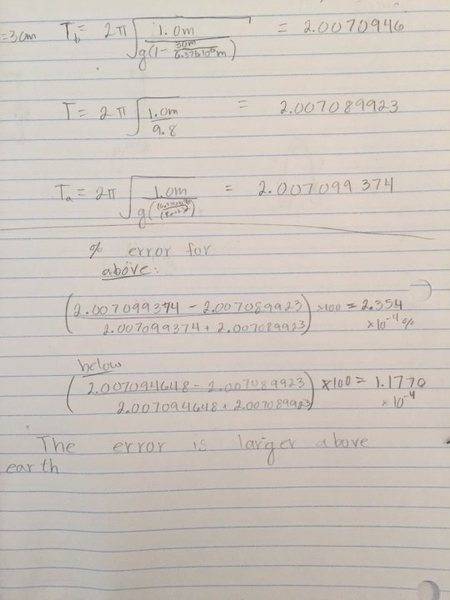 =3cm T_b = 2π √(1.0m / g(1 - 30m/6.37x10^6m)) = 2.0070946
T = 2π √(1.0m / 9.8) = 2.007089923
T_a = 2π √(1.0m / g( )) = 2.007099374
% error for
above:
(2.007099374 - 2.007089923 / 2.007099374 + 2.007089923) x100 = 2.354 x10^-4 %
below
(2.007094648 - 2.007089923 / 2.007094648 + 2.007089923) x100 = 1.1770 x10^-4
The error is larger above
earth